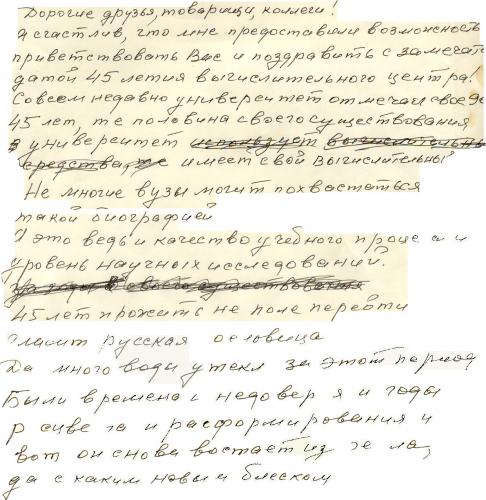 Дорогие друзья, товарищи, коллеги!
Я счастлив, что мне предоставили возможность
приветствовать Вас и поздравить с замечате
датой 45 летия вычислительного центра!
Совсем недавно университет отмечал свое 90
45 лет, те половина своего существования
университет использует вычислительны
средства, же имеет свой вычислительный
Не многие вузы могут похвастаться
такой биографией
И это ведь и качество учебного проце а и
уровень научных исследований.
своего существования
45 лет прожить не поле перейти
гласит русская ословица
Да много воды утекл за этот период
Были времена и недовер я и годы
р сцве та и расформирования и
вот он снова востает из пе ла,
да с каким новы и блеском